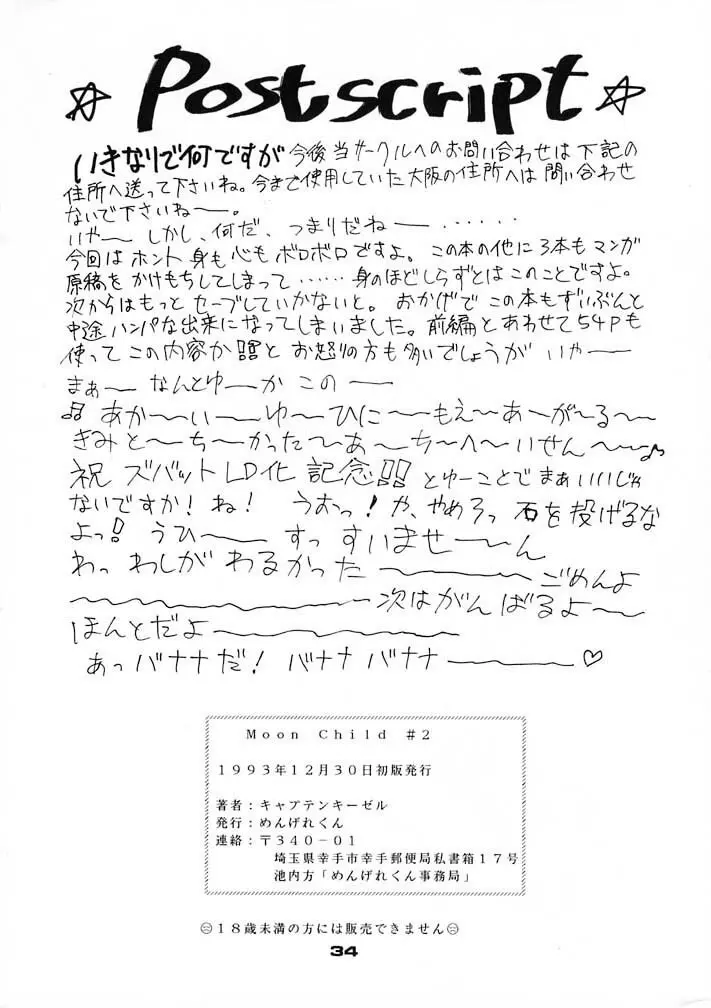 ☆ Postscript ☆
いきなりで何ですが 今後当サークルへのお問い合わせは 下記の
住所へ送って下さいね。今まで使用していた大阪の住所へは 問い合わせ
ないで下さいねー。
いやー しかし、何だ、つまりだねー‥‥‥
今回は ホント 身も心も ボロボロ ですよ。この本の他に 3本も マンガ
原稿を かけもちしてしまって ‥‥‥ 身のほどしらずとは このことですよ。
次からはもっと セーブしていかないと。 おかげで この本もずいぶんと
中途ハンパな出来になってしまいました。前編とあわせて 54Pも
使って この内容か!!!と お怒りの方も多いでしょうが いやー
まぁ〜 なんとゆーか この ー
♫ あか〜〜い──ゆ〜ひに〜〜もえ〜あ〜が〜る〜〜
きみと〜ち〜かった〜あ〜ち〜へ〜いせん〜〜〜♪
祝 ズバット LD化 記念!!! とゆーことで まぁいいじゃ
ないですか! ね! うおっ! や、やめろっ 石を投げるな
よっ! うひ〜── すっ すいませ──ん
わっ わしが わるかった ──── ごめんよ
〜〜〜〜〜〜 次は がんばるよ〜〜
ほんとだよ ────
あっ バナナだ! バナナ バナナ ──── ♡
Moon Child #2
1993年12月30日初版発行
著者:キャプテンキーゼル
発行:めんげれくん
連絡:〒340-01
埼玉県幸手市幸手郵便局私書箱17号
池内方「めんげれくん事務局」
18歳未満の方には販売できません
34